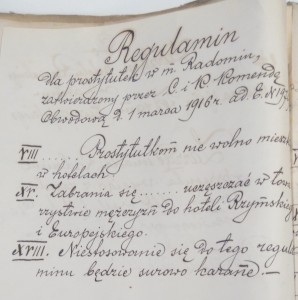 Regulamin
dla prostytutek w m. Radomiu,
zatwierdzony przez C i K Komendę
Obwodową d. 1 marca 1916 r. ad. E. № 19
VIII .... Prostytutkom nie wolno miesz
w hotelach
XV. Zabrania się ....... uczęszczać w tow
rzystwie mężczyzn do hoteli Rzymskieg
i Europejskiego.
XVIII. Niestosowanie się do tego regul
minu będzie surowo karane. —